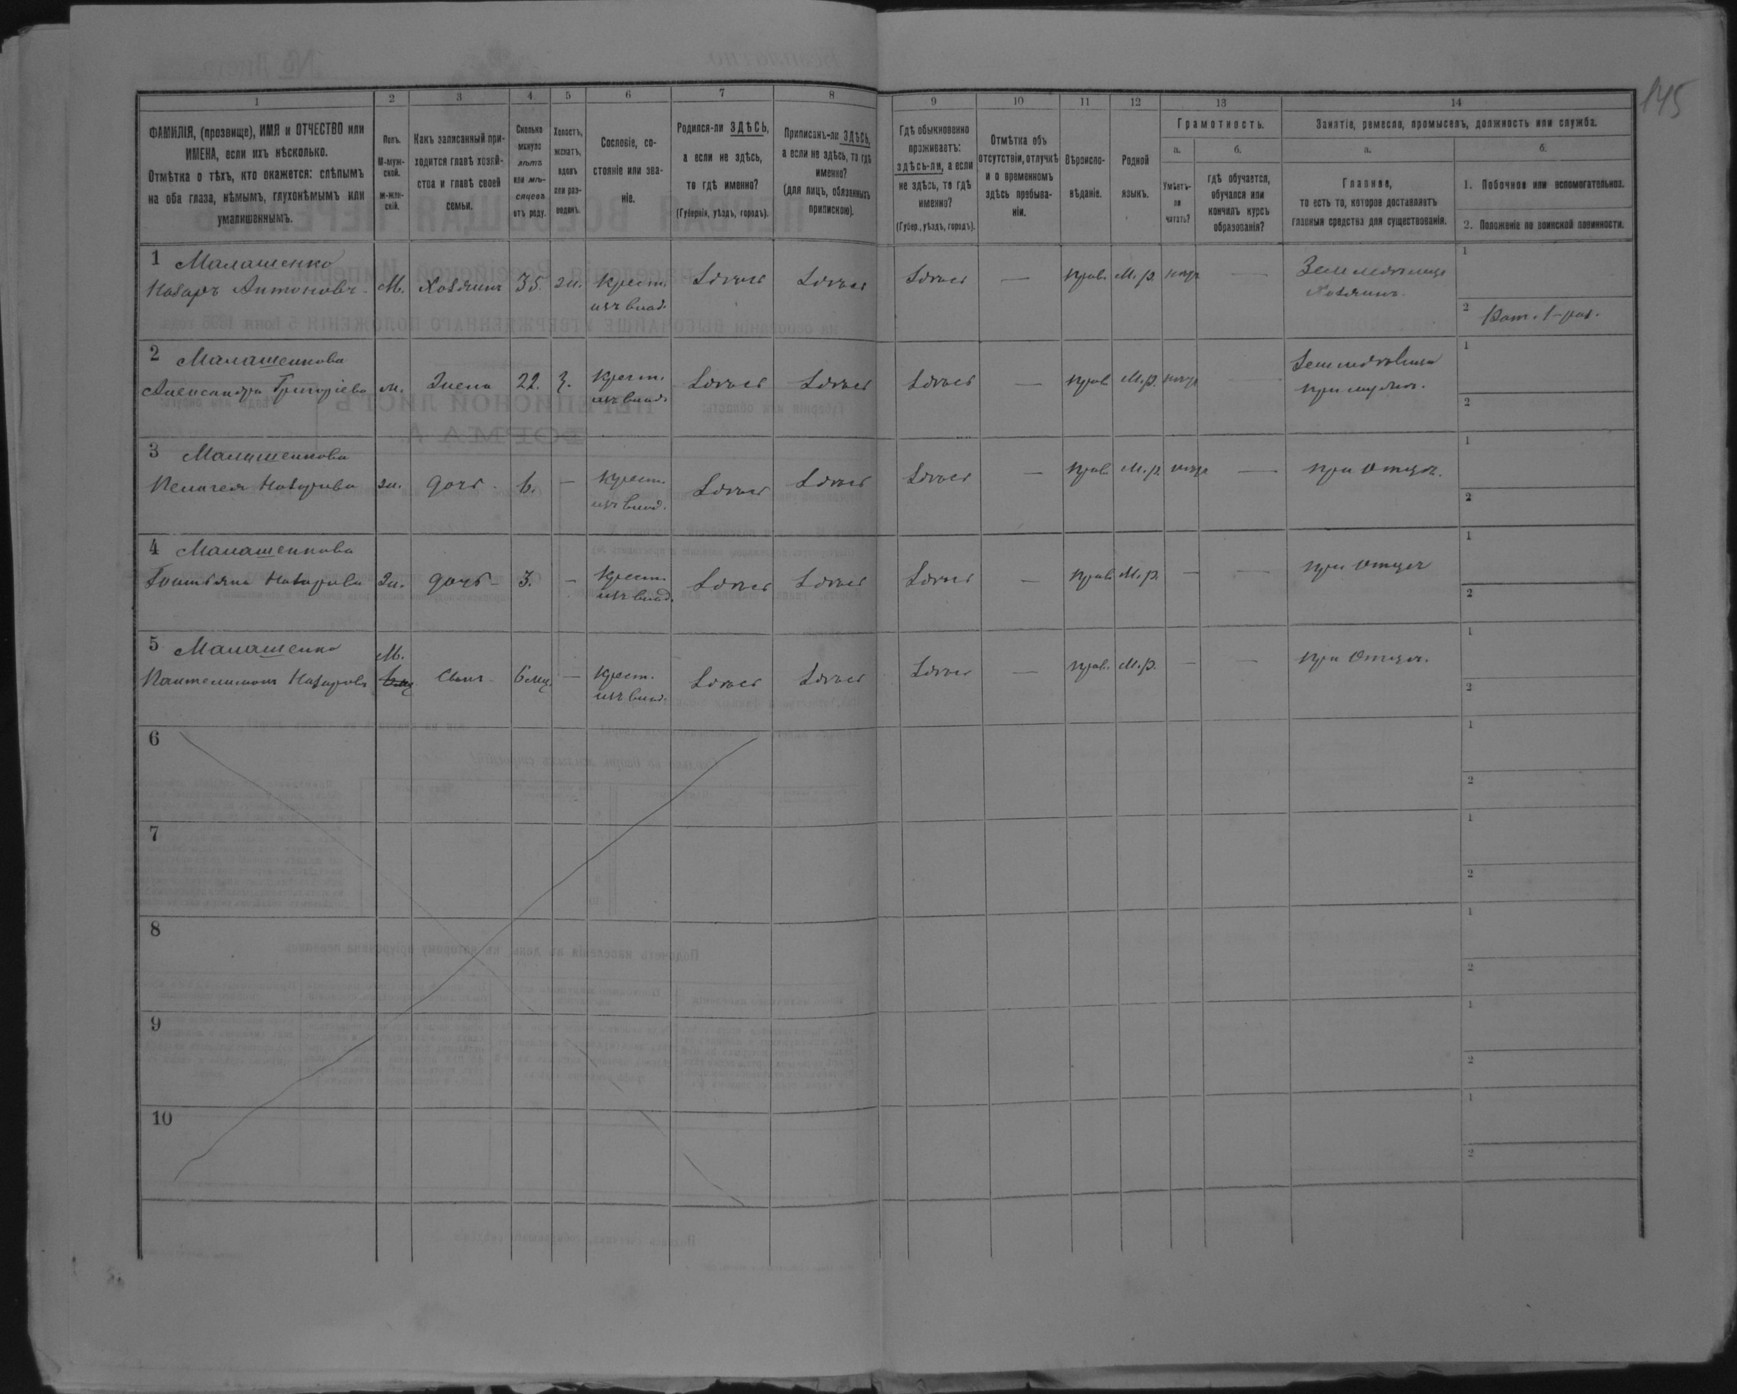 145
1 2 3 4 5 6 7 8 9 10 11 12 13 14
ФАМИЛІЯ, (прозвище), ИМЯ и ОТЧЕСТВО или
ИМЕНА, если ихъ нѣсколько.
Отмѣтка о тѣхъ, кто окажется: слѣпымъ
на оба глаза, нѣмымъ, глухонѣмымъ или
умалишеннымъ.
Полъ.
М-муж-
ской.
ж-жен-
скій.
Какъ записанный при-
ходится главѣ хозяй-
ства и главѣ своей
семьи.
Сколько
минуло
лѣтъ
или мѣ-
сяцевъ
отъ роду.
Холостъ,
женатъ,
вдовъ
или раз-
веденъ.
Сословіе, со-
стояніе или зва-
ніе.
Родился-ли ЗДѢСЬ,
а если не здѣсь,
то гдѣ именно?
(Губернія, уѣздъ, городъ).
Приписанъ-ли ЗДѢСЬ,
а если не здѣсь, то гдѣ
именно?
(для лицъ, обязанныхъ
припискою).
Гдѣ обыкновенно
проживаетъ:
здѣсь-ли, а если
не здѣсь, то гдѣ
именно?
(Губер., уѣздъ, городъ).
Отмѣтка объ
отсутствіи, отлучкѣ
и о временномъ
здѣсь пребыва-
ніи.
Вѣроиспо-
вѣданіе.
Родной
языкъ.
Грамотность.
а. б.
Умѣетъ-
ли
читать?
гдѣ обучается,
обучался или
кончилъ курсъ
образованія?
Занятіе, ремесло, промыселъ, должность или служба.
а. б.
Главное,
то есть то, которое доставляетъ
главныя средства для существованія.
1. Побочное или вспомогательное.
2. Положеніе по воинской повинности.
1 Малашенко
Назаръ Антоновъ М. Хозяинъ 35. ж. крест. Здѣсь Здѣсь Здѣсь — прав. М.р. нѣтъ — Земледѣлецъ 1
изъ влад. Хозяинъ. 2
2 Малашенкова
Александра Григорiева ж. Жена 22. з. крест. Здѣсь Здѣсь Здѣсь — прав. М.р. нѣтъ 1
изъ влад. при мужѣ. 2
3 Малашенкова
Пелагея Назарова ж. дочь 6. — крест. Здѣсь Здѣсь Здѣсь — прав. М.р. нѣтъ — при отцѣ. 1
изъ влад. 2
4 Малашенкова
Татьяна Назарова ж. дочь 3. — крест. Здѣсь Здѣсь Здѣсь — прав. М.р. — — при отцѣ 1
изъ влад. 2
5 Малашенко М.
Пантелимонъ Назаровъ сынъ 6 мц. — крест. Здѣсь Здѣсь Здѣсь — прав. М.р. — — при отцѣ. 1
изъ влад. 2
6 1
2
7 1
2
8 1
2
9 1
2
10 1
2